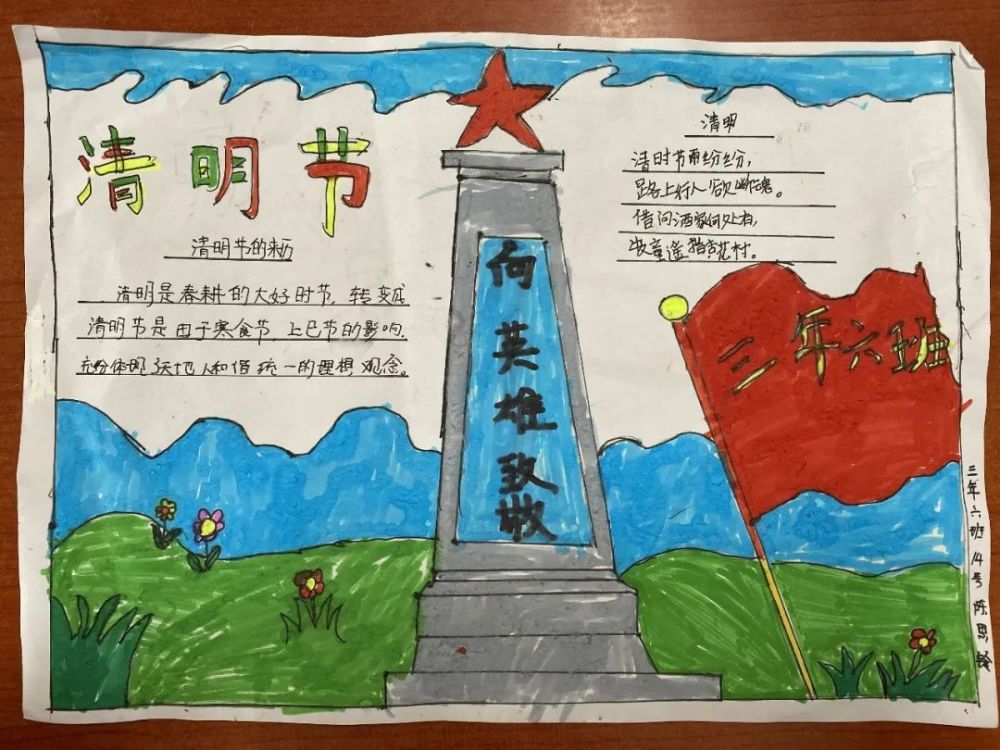 清明节
清明节的来历
清明是春耕的大好时节，转变成
清明节是由于寒食节、上巳节的影响，
充份体现了天地人和谐统一的理想观念。
清明
清时节雨纷纷，
路上行人欲断魂。
借问酒家何处有，
牧童遥指杏花村。
向英雄致敬
三年六班
三年六班 14号 陈思